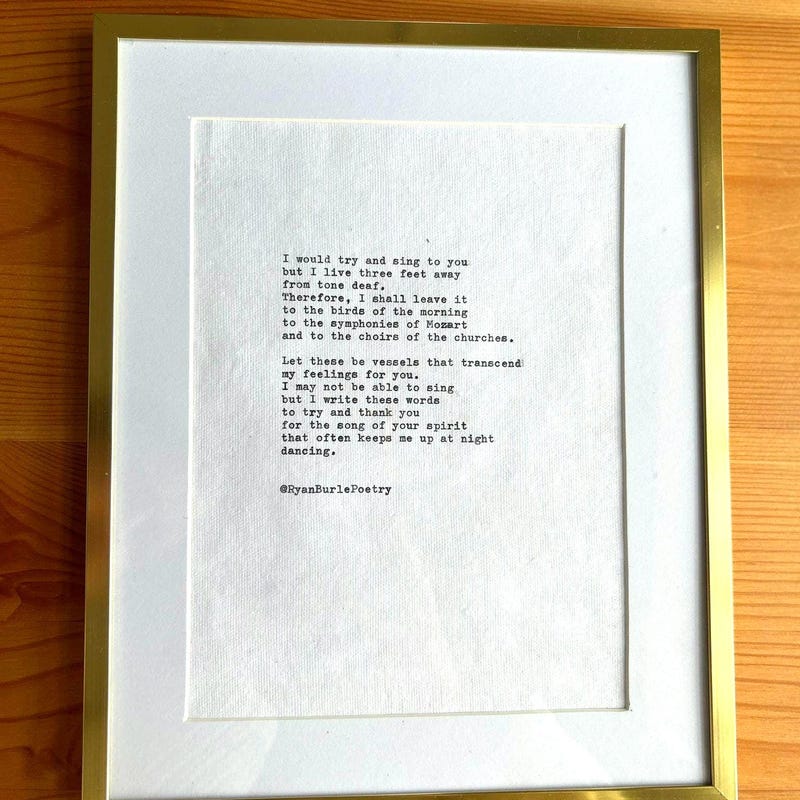 I would try and sing to you
but I live three feet away
from tone deaf.
Therefore, I shall leave it
to the birds of the morning
to the symphonies of Mozart
and to the choirs of the churches.
Let these be vessels that transcend
my feelings for you.
I may not be able to sing
but I write these words
to try and thank you
for the song of your spirit
that often keeps me up at night
dancing.
@RyanBurlePoetry